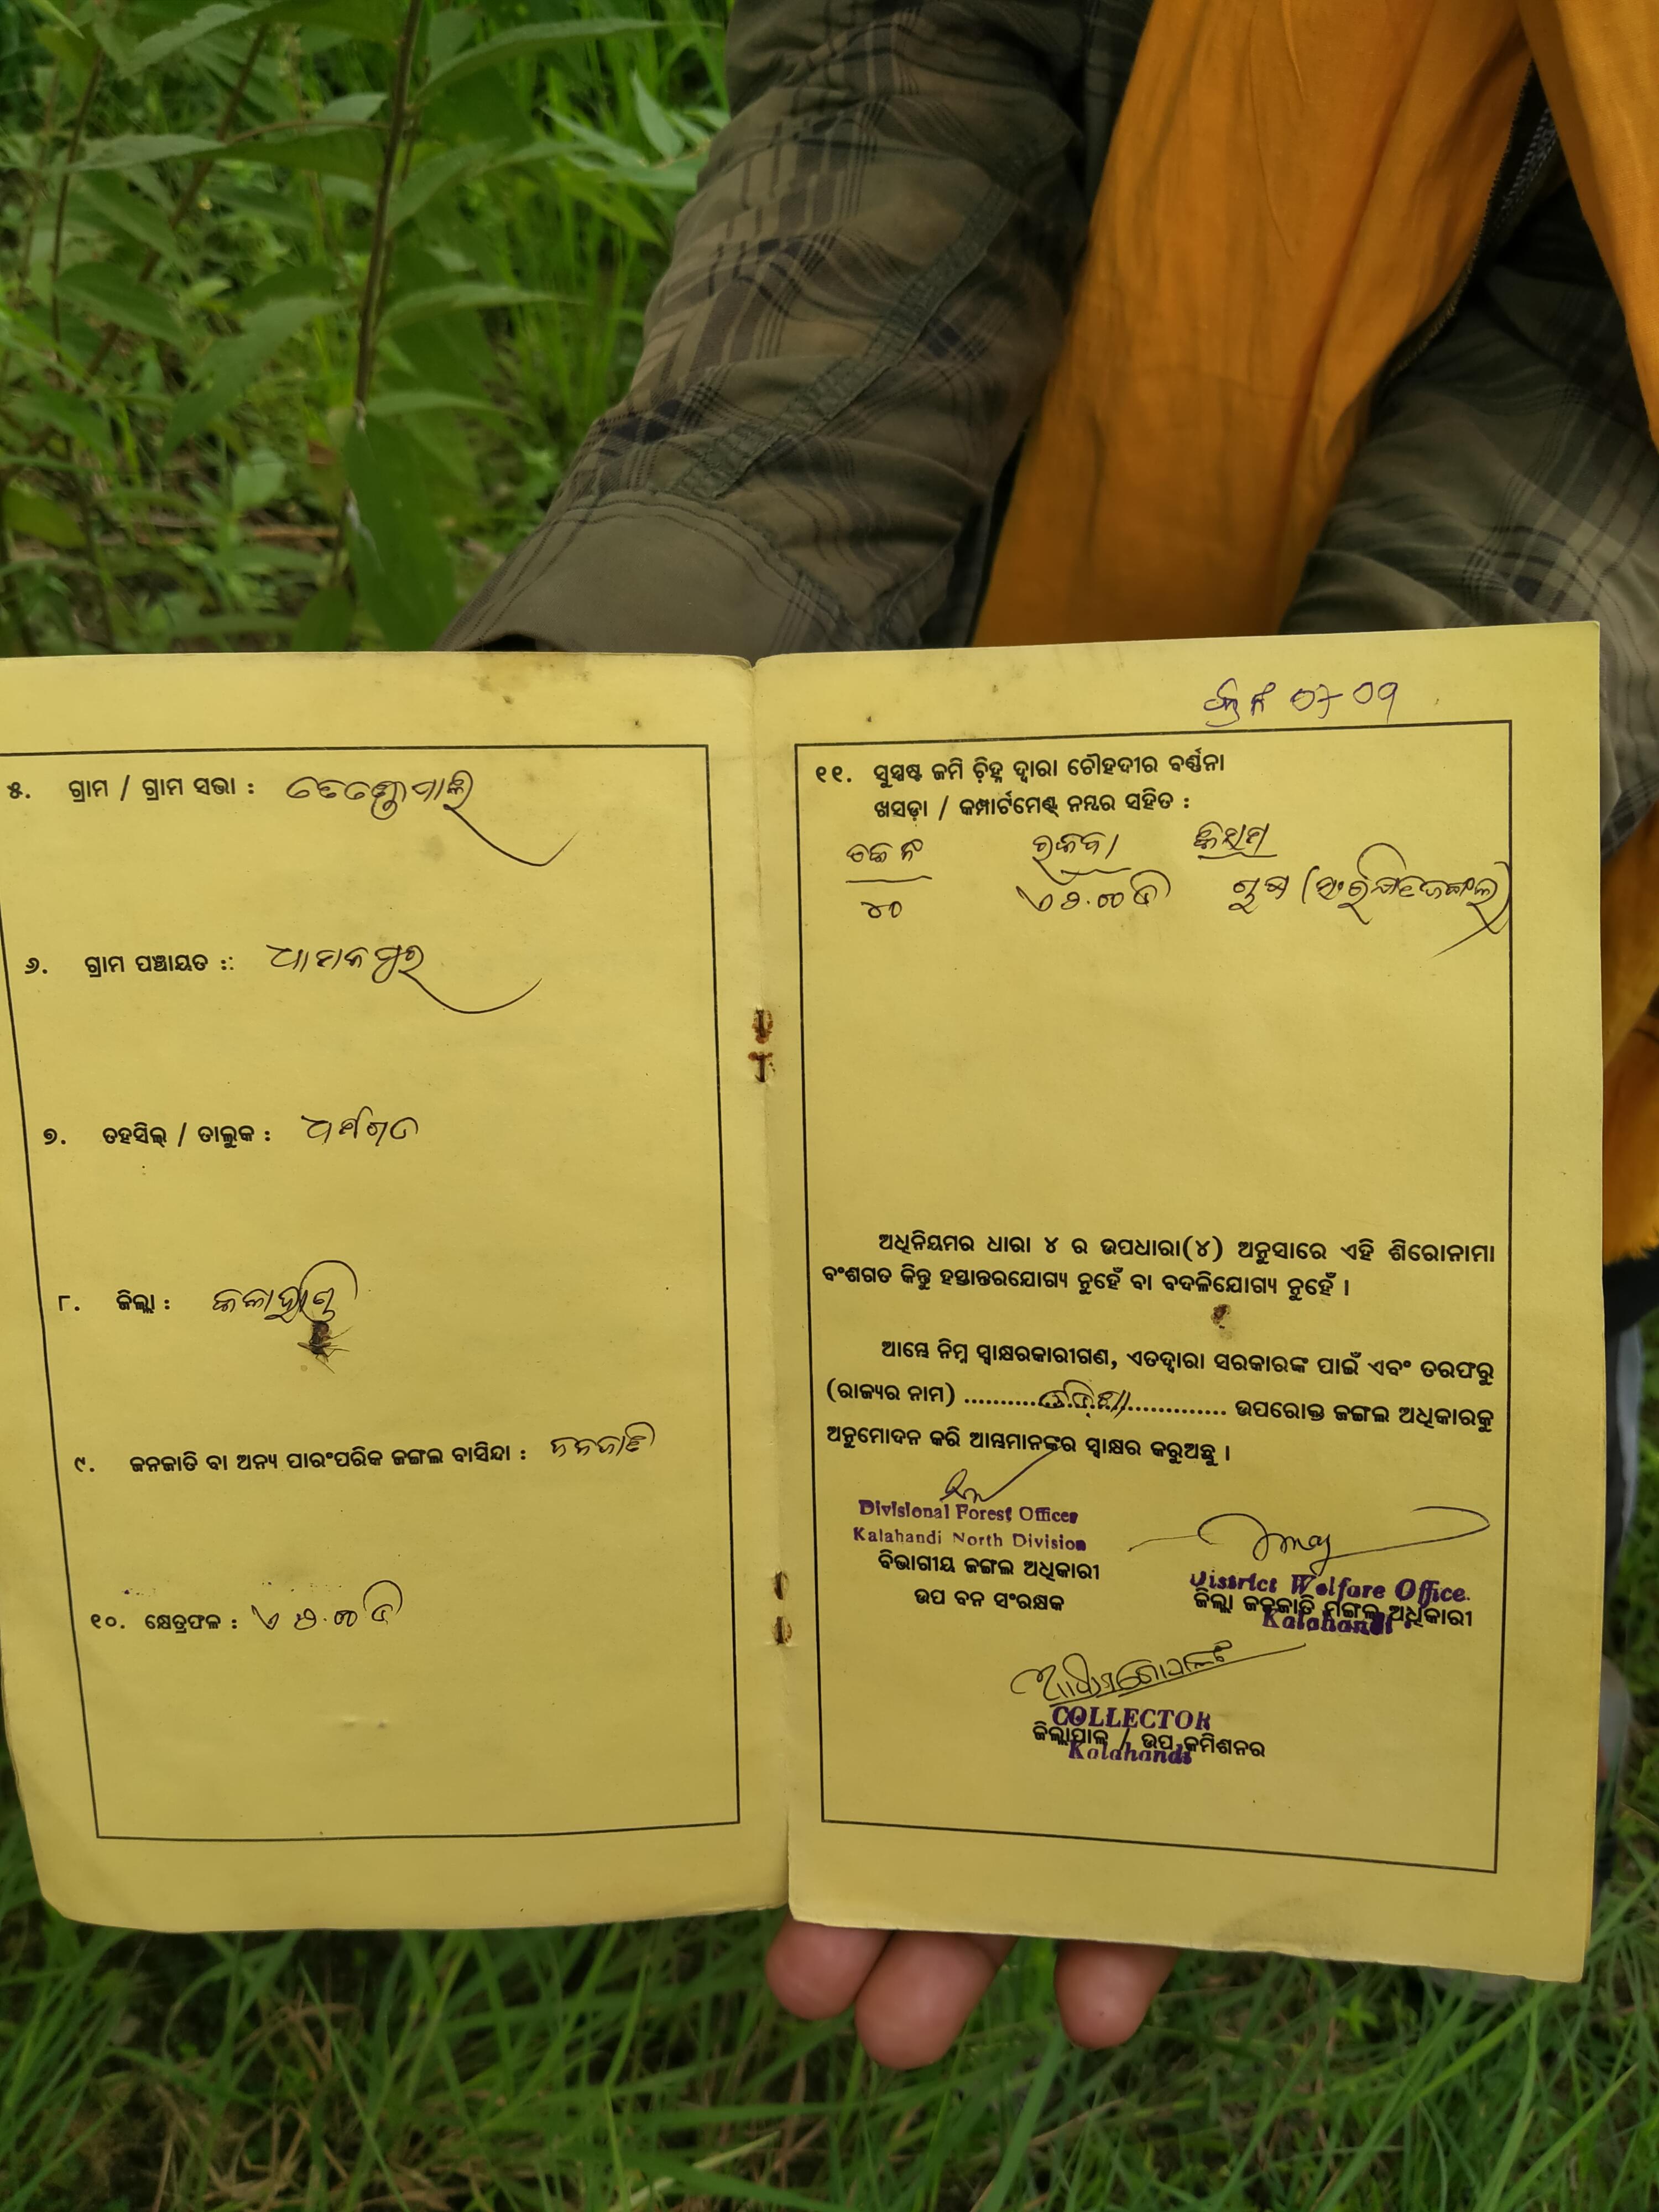 ୫. ଗ୍ରାମ / ଗ୍ରାମ ସଭା :
୬. ଗ୍ରାମ ପଞ୍ଚାୟତ :: ଧାମକପୁର
୭. ତହସିଲ୍ / ତାଲୁକ : ଧର୍ମଗଡ
୮. ଜିଲ୍ଲା : କଳାହାଣ୍ଡି
୯. ଜନଜାତି ବା ଅନ୍ୟ ପାରଂପରିକ ଜଙ୍ଗଲ ବାସିନ୍ଦା : ଜନଜାତି
୧୦. କ୍ଷେତ୍ରଫଳ :
୧୧. ସୁସ୍ପଷ୍ଟ ଜମି ଚ଼ିହ୍ନ ଦ୍ୱାରା ଚୌହଦୀର ବର୍ଣ୍ଣନା
ଖସଡ଼ା / କମ୍ପାର୍ଟମେଣ୍ଟ୍ ନମ୍ବର ସହିତ :
ରକବା କିସମ
୪୦
ଅଧିନିୟମର ଧାରା ୪ ର ଉପଧାରା(୪) ଅନୁସାରେ ଏହି ଶିରୋନାମା
ବଂଶଗତ କିନ୍ତୁ ହସ୍ତାନ୍ତରଯୋଗ୍ୟ ନୁହେଁ ବା ବଦଳିଯୋଗ୍ୟ ନୁହେଁ ।
ଆମ୍ଭେ ନିମ୍ନ ସ୍ୱାକ୍ଷରକାରୀଗଣ, ଏତଦ୍ୱାରା ସରକାରଙ୍କ ପାଇଁ ଏବଂ ତରଫରୁ
(ରାଜ୍ୟର ନାମ) ..........ଓଡିଶା.............. ଉପରୋକ୍ତ ଜଙ୍ଗଲ ଅଧିକାରକୁ
ଅନୁମୋଦନ କରି ଆମ୍ଭମାନଙ୍କର ସ୍ୱାକ୍ଷର କରୁଅଛୁ ।
Divisional Forest Officer
Kalahandi North Division
ବିଭାଗୀୟ ଜଙ୍ଗଲ ଅଧିକାରୀ
ଉପ ବନ ସଂରକ୍ଷକ
District Welfare Office.
ଜିଲ୍ଲା ଜନଜାତି ମଙ୍ଗଳ ଅଧିକାରୀ
Kalahandi
COLLECTOR
ଜିଲ୍ଲାପାଳ / ଉପ କମିଶନର
Kalahandi